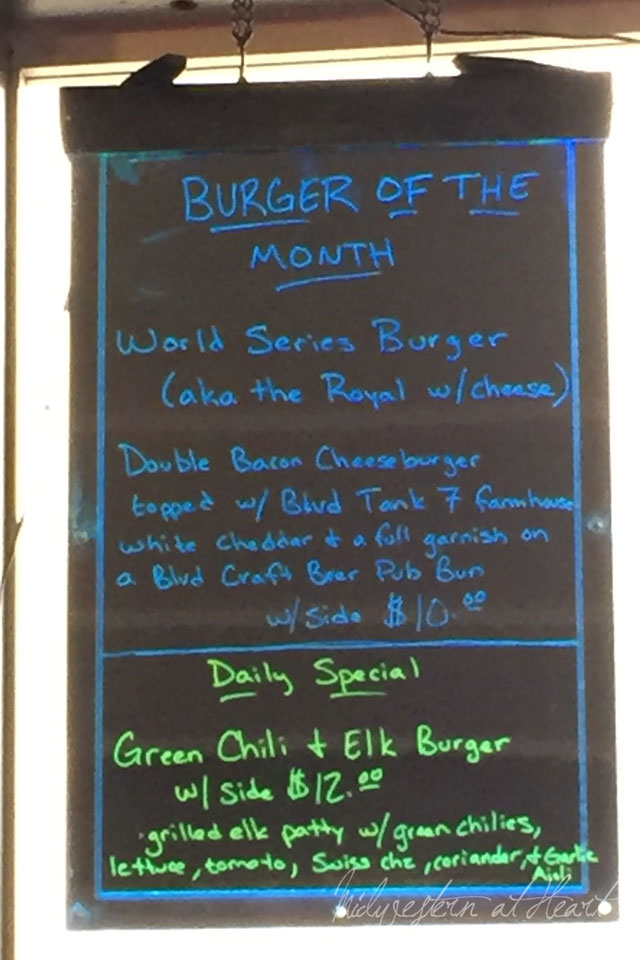 BURGER OF THE
MONTH
World Series Burger
(aka the Royal w/cheese)
Double Bacon Cheeseburger
topped w/ Blvd Tank 7 farmhouse
white cheddar + a full garnish on
a Blvd Craft Beer Pub Bun
w/ side $10.00
Daily Special
Green Chili + Elk Burger
w/ side $12.00
·grilled elk patty w/green chilies,
lettuce, tomato, Swiss chz, coriander, + Garlic
Aioli
Midwestern at Heart